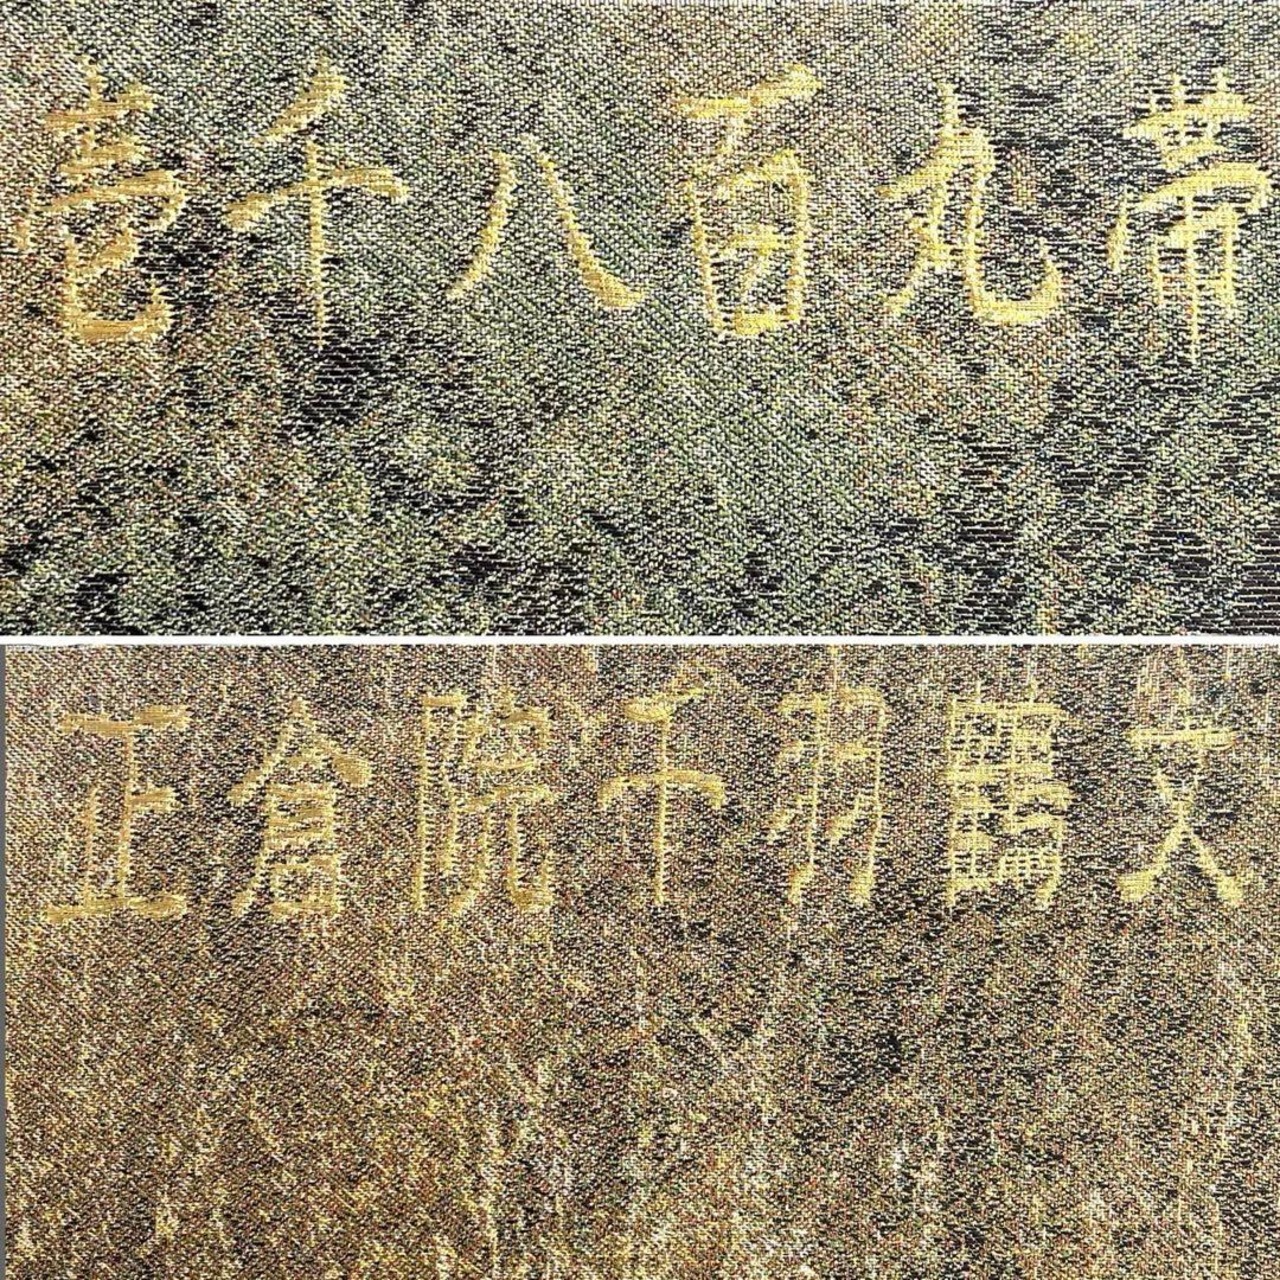 壱千八百丸帯
正倉院千羽鶴文